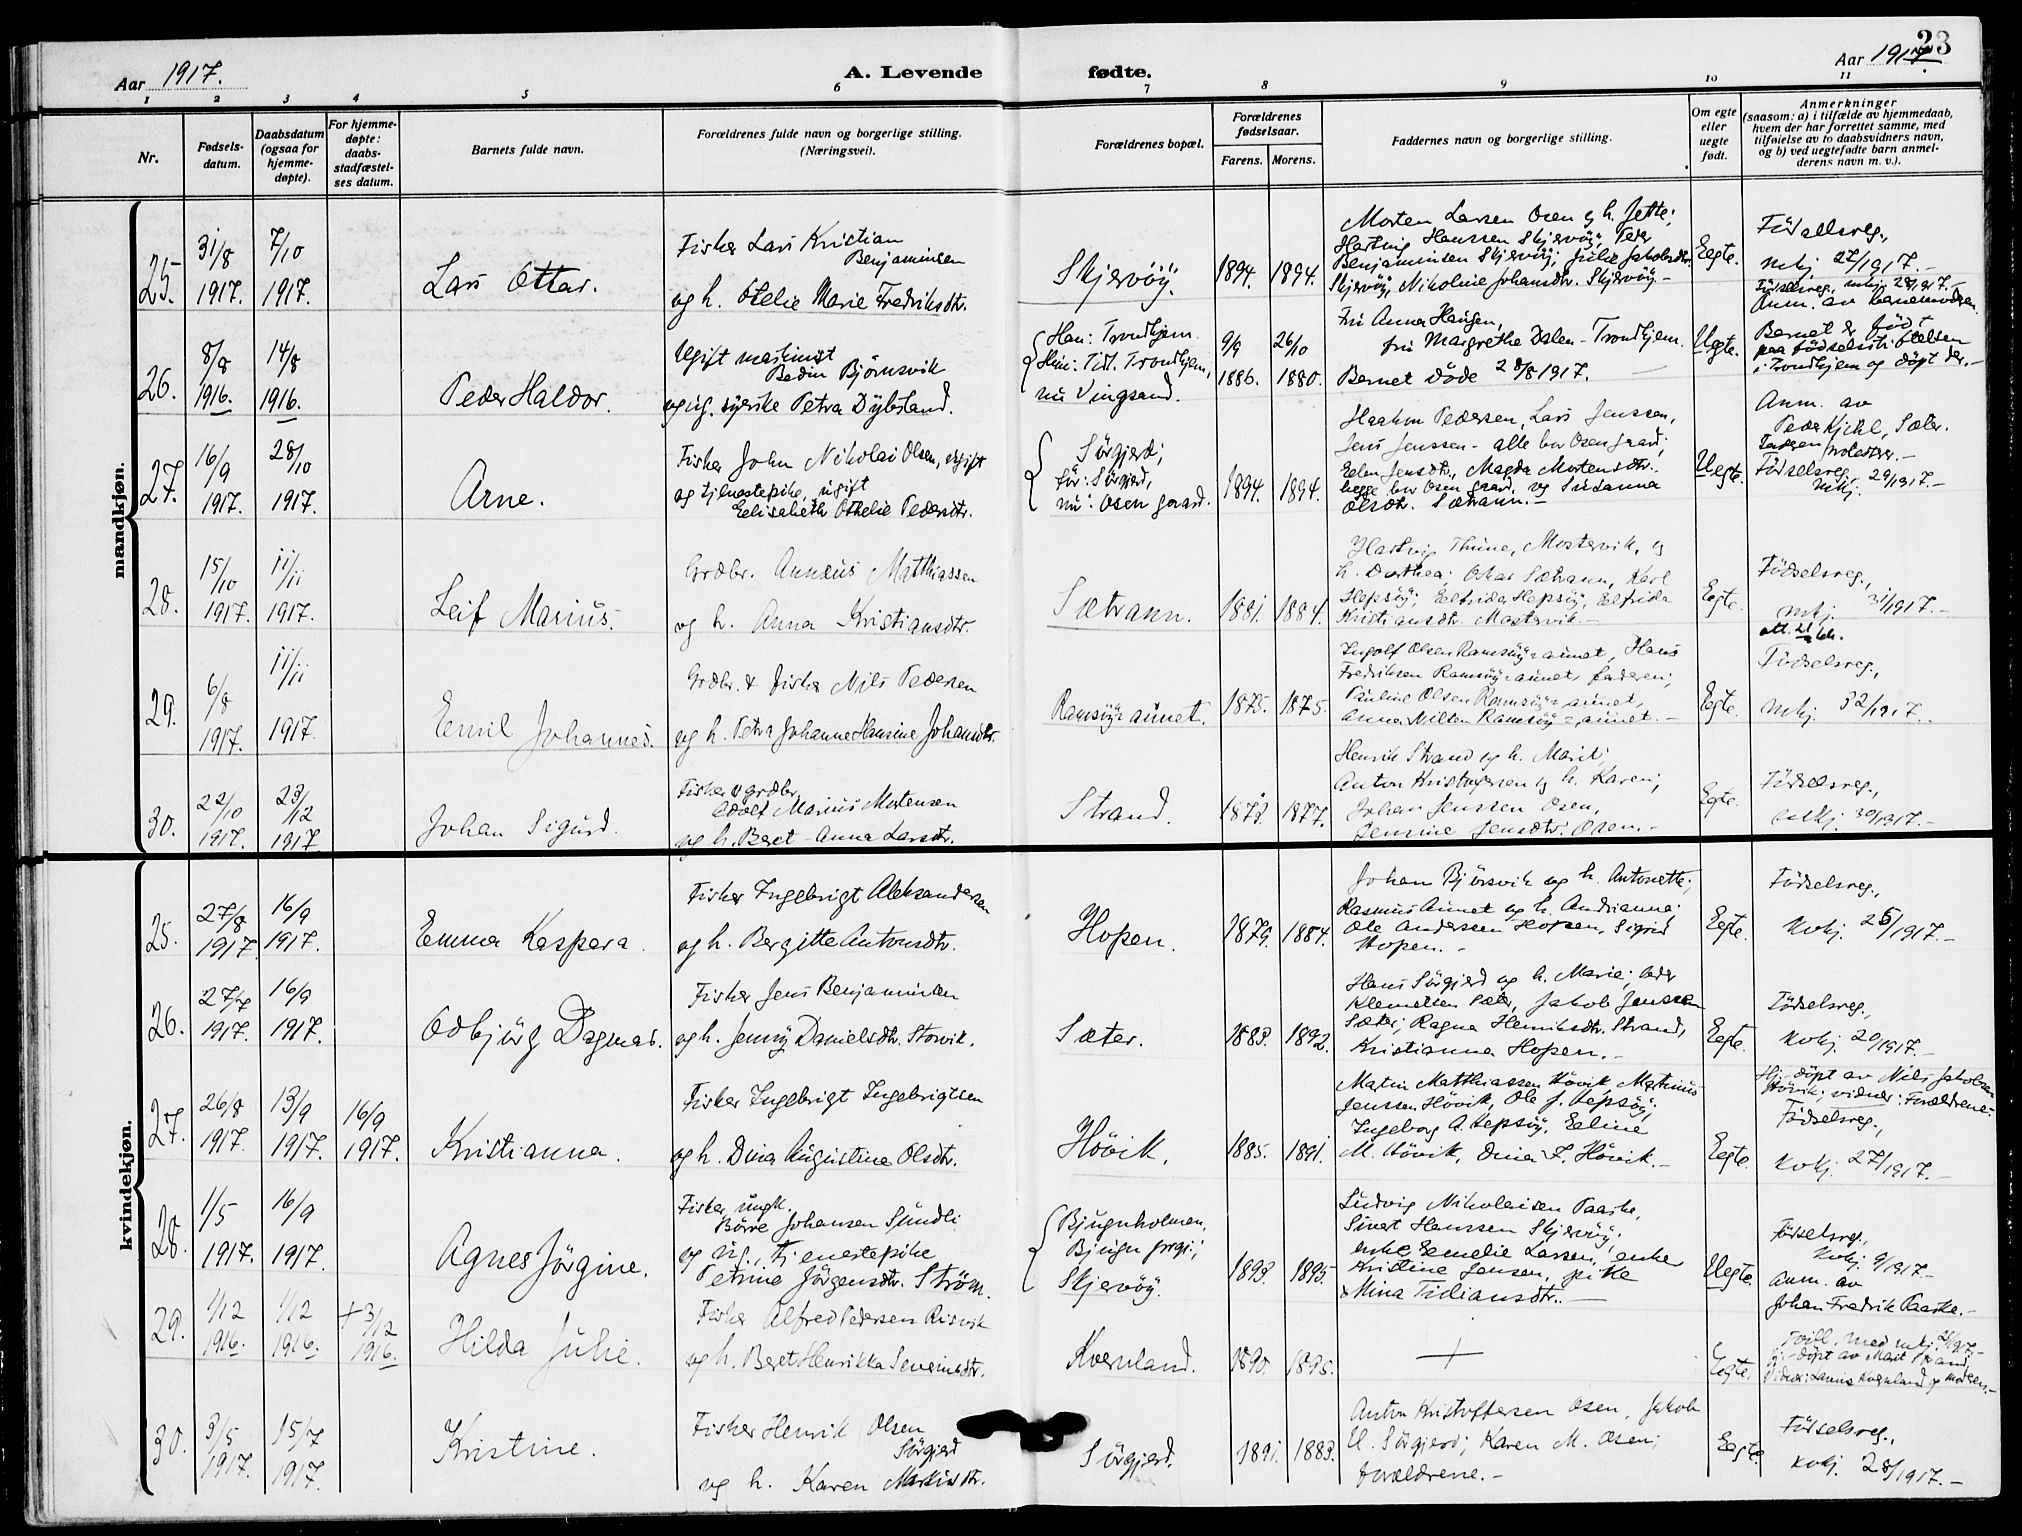 23
Aar 1917.
A. Levende fødte.
Aar 1917.
1 2 3 4 5 6 7 8 9 10 11
Nr.
Fødsels-
datum.
Daabsdatum
(ogsaa for
hjemme-
døpte).
For hjemme-
døpte:
daabs-
stadfæstel-
ses datum.
Barnets fulde navn.
Forældrenes fulde navn og borgerlige stilling.
(Næringsvei).
Forældrenes bopæl.
Forældrenes
fødselsaar.
Farens. Morens.
Faddernes navn og borgerlige stilling.
Om egte
eller
uegte
født.
Anmerkninger
(saasom: a) i tilfælde av hjemmedaab,
hvem der har forrettet samme, med
tilføielse av to daabsvidners navn,
og b) ved uegtefødte barn anmel-
derens navn m. v.).
mandkjøn.
25.
31/8
1917.
7/10
1917.
Lars Ottar.
Fisker Lars Kristian
Benjaminsen
og h. Otelie Marie Fredriksdtr.
Skjervöy.
1894. 1894.
Morten Larsen Osen og h. Jette;
Hartvig Hanssen Skjervöy, Peder
Benjaminsen Skjervöy; Julie Jakobsdtr.
Skjervöy, Nikoline Johansdtr. Skjervöy.-
Egte.
Födselsreg.,
mkj. 27/1917.-
26.
8/8
1916.
14/8
1916.
Peder Haldor.
Ugift maskinist
Bedin Björnsvik
og ug. syerske Petra Dybstand.
Han: Trondhjem
Hun: Tidl. Trondhjem,
nu Vingsand.
9/9
1886.
26/10
1880.
Fru Anna Haugen,
fru Margrethe Dalen - Trondhjem.
Barnet döde 28/8 1917.
Uegte.
Födselsreg. mkj. 28/1917.
Anm. av barnemoderen.
Barnet er född
paa födselsstiftelsen
i Trondhjem og döpt der.-
27.
16/9
1917.
28/10
1917.
Arne.
Fisker John Nikolai Olsen, ugift
og tjenestepike, ugift
Elisabeth Othelie Pedersdtr.
Sörgjerd;
för: Sörgjerd,
nu: Osen gaard.
1894. 1894.
Haakon Pedersen, Lars Jenssen,
Jens Jenssen - alle bor Osen gaard;
Ellen Jensdtr., Magda Mortensdtr.
begge bor Osen gaard, og Susanna
Olsdtr. Sætrann.-
Uegte.
Anm. av
Peder Kjekl, Sæter.
Födselsreg.
mkj. 29/1917.-
28.
15/10
1917.
11/11
1917.
Leif Marius.
Grdbr. Annæus Matthiassen
og h. Anna Kristiansdtr.
Sætrann.
1881. 1884.
Hartvig Thune, Mostervik, og
h. Dorthea; Oskar Sætrann, Karl
Hepsöy; Elfrida Hepsöy, Elfrida
Kristiansdtr. Mostervik.-
Egte.
Födselsreg.,
mkj. 31/1917.-
29.
6/8
1917.
11/11
1917.
Emil Johannes.
Grdbr. & fisker Nils Pedersen
og h. Petra Johanne Hansine Johansdtr.
Ramsöy-aunet.
1875. 1875.
Ingolf Olsen Ramsöy-aunet, Hans
Fredriksen Ramsöy-aunet, faderen;
Pauline Olsen Ramsöy-aunet,
Anna Nilsen Ramsöy-aunet.-
Egte.
Födselsreg.,
mkj. 32/1917.
30.
22/10
1917.
23/12
1917
Johan Sigurd.
Fisker & grdbr.
Adolf Marius Mortensen
og h. Beret-Anna Larsdtr.
Strand.
1873. 1877.
Henrik Strand og h. Marit;
Anton Kristofersen og h. Karen;
Johan Jenssen Osen,
Jensine Jensdtr. Osen.-
Egte.
Födselsreg.,
mkj. 30/1917.-
kvindekjøn.
25.
27/8
1917.
16/9
1917.
Emma Kaspara.
Fisker Ingebrigt Aleksandersen
og h. Bergitte Antonsdtr.
Hopen.
1879. 1884.
Johan Björsvik og h. Antonette;
Rasmus Aunet og h. Andrianna;
Ole Anderssen Hopsen, Sigrid
Hopen.-
Egte.
Födselsreg.,
kvkj. 25/1917.-
26.
27/7
1917.
16/9
1917.
Odbjörg Dagmar.
Fisker Jens Benjaminsen
og h. Jenny Danielsdtr. Storvik.
Sæter.
1883. 1892.
Hans Sörgjerd og h. Marie; Peder
Klemetsen Sæter, Jakob Jenssen
Sæter; Ragna Henriksdtr. Strand,
Kristianna Hopen.-
Egte.
Födselsreg.,
kvkj. 20/1917.-
27.
26/8
1917.
13/9
1917.
16/9
1917.
Kristianna.
Fisker Ingebrigt Ingebrigtsen
og h. Dina Augustine Olsdtr.
Hövik.
1885. 1891.
Matin Matthiassen Hövik, Martinus
Jenssen Hövik, Ole J. Hepsöy;
Ingeborg A. Hepsöy, Eline
M. Hövik, Dina F. Hövik.-
Egte.
Hj.-döpt av Nils Jakobsen
Hövik; vidner: Forældrene.
Födselsreg.,
kvkj. 27/1917.-
28.
1/5
1917.
16/9
1917.
Agnes Jörgine.
Fisker, ungk.
Börre Johansen Sundli
og ug., tjenestepike
Petrine Jörgensdtr. Ström.
Bjugnholmen,
Bjugn prgj.;
Skjervöy.
1893. 1895.
Ludvig Nikolaisen Paaske,
Sivert Hanssen Skjervöy;
enke Emelie Larsen, enke
Kristine Jensen, pike
Mina Tidiansdtr.-
Uegte.
Födselsreg.,
kvkj. 9/1917.-
Anm. av
Johan Fredrik Paaske.-
29.
1/12
1916.
1/12
1916.
+ 3/12
1916.
Hilda Julie.
Fisker Alfred Pedersen Risvik
og h. Beret Henrikka Severinsdtr.
Kvernland.
1890. 1895.
+
Egte.
Tvill. med mkj. 2/1917.-
Hj.-döpt av Marit Strand,
Vidner: Laura Kvernland og moderen.-
30.
3/5
1917.
15/7
1917.
Kristine.
Fisker Henrik Olsen
Sörgjerd
og h. Karen Markusdtr.
Sörgjerd.
1891. 1883.
Anton Kristoffersen Osen, Jakob
U. Sörgjerd; Karen M. Osen;
forældrene.-
Egte.
Födselsreg.,
kvkj. 28/1917.-